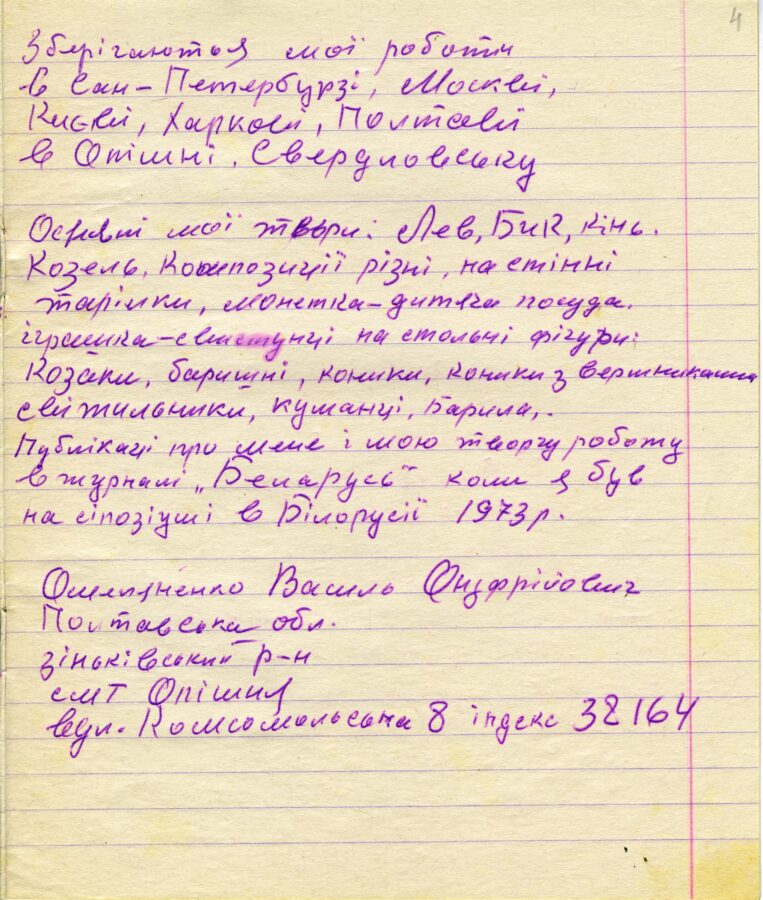 4
Зберігаються мої роботи
в Сан-Петербурзі, Москві,
Києві, Харкові, Полтаві
в Опішні, Свердловську
Основні мої твори: Лев, Бик, кінь.
Козель, Композиції різні, на стінні
тарілки, монетка-дитяча посуда.
іграшка-свистунці на стольні фігури:
Козаки, баришні, коники, коники з вершниками
світильники, куманці, Барила,.
Публікаці про мене і мою творчу роботу
в журналі „Беларусь" коли я був
на сіпозіумі в Білорусії 1973 р.
Омеляненко Василь Онуфрійович
Полтавська обл.
зіньківський р-н
смт Опішня
вул. Комсомольська 8 індекс 38164